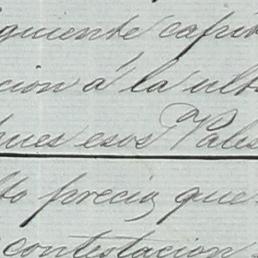 iguiente capit
cion á la ult
ques esos Vales
lto precio, que
contestacion